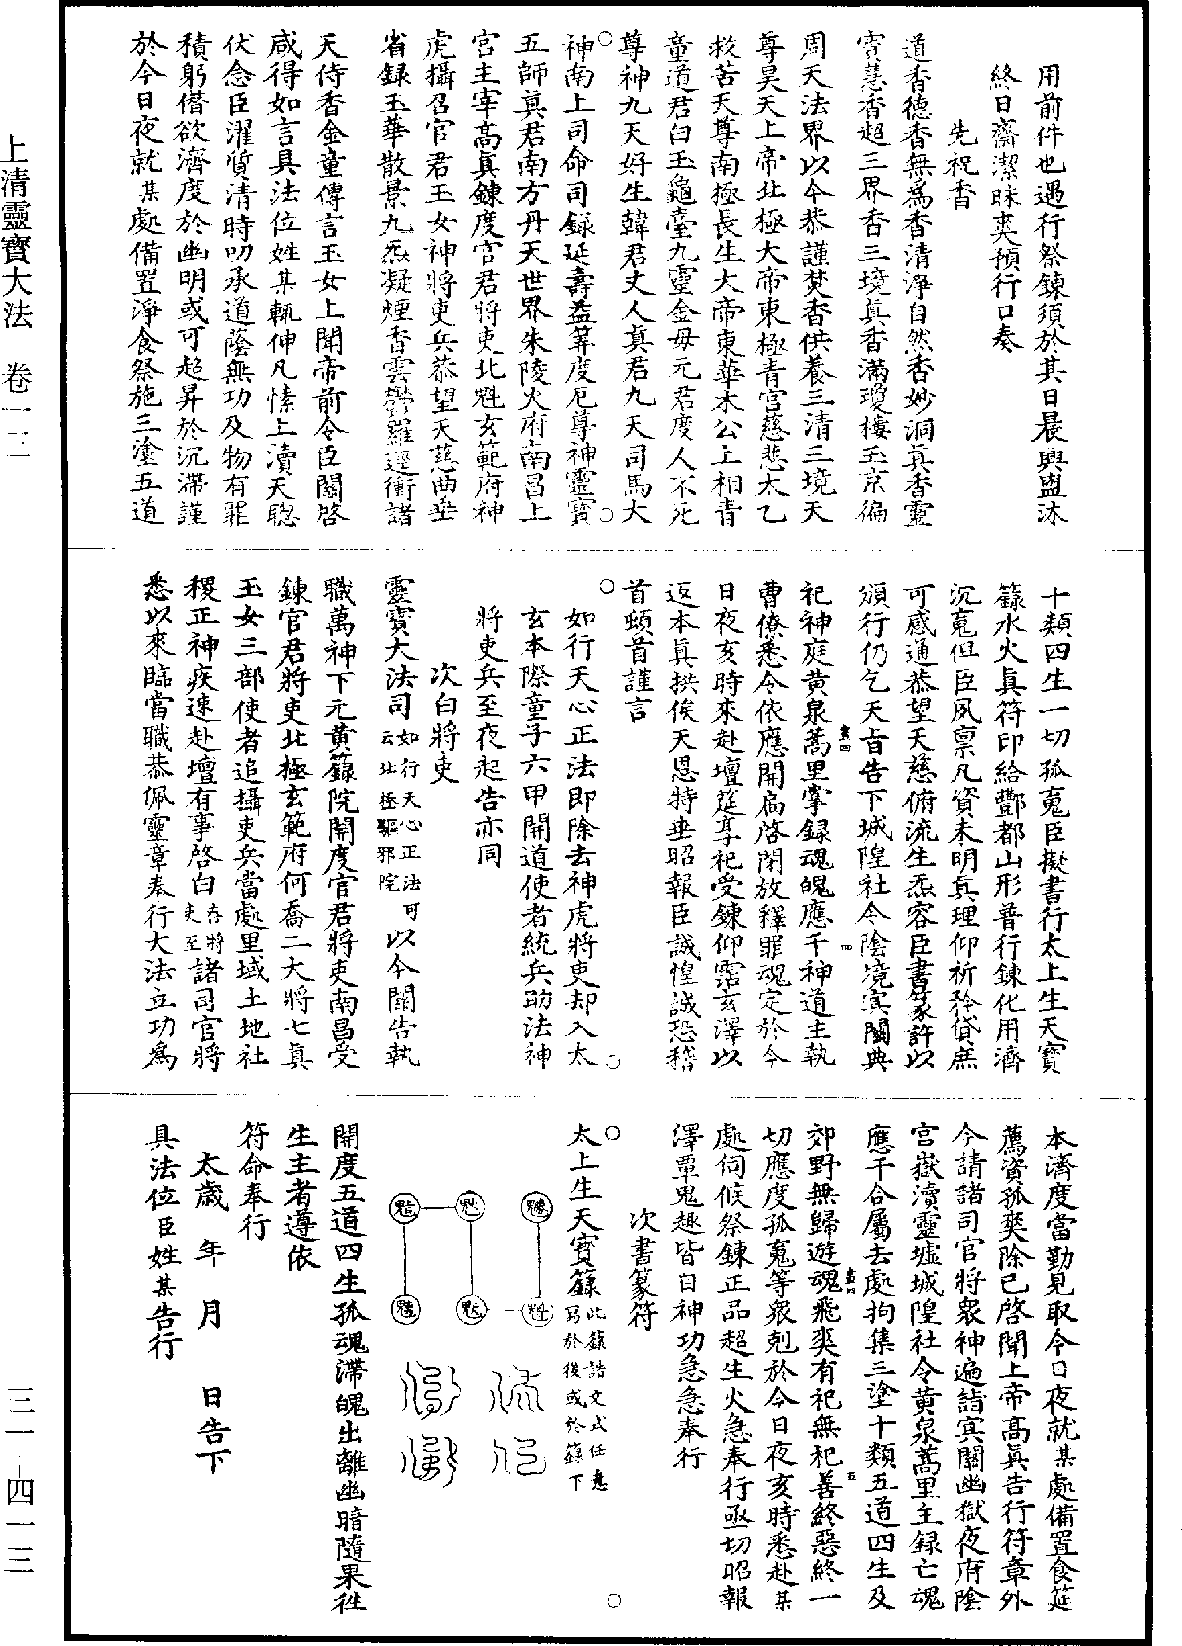 用前件也遇行祭鍊須於其日晨興盥沐
終日齋潔昧爽預行口奏
先祝香
道香德香無爲香清淨自然香妙洞眞香靈
寳慧香超三界香三境眞香滿瓊樓玉京徧
周天法界以今恭謹焚香供養三清三境天
尊昊天上帝北極大帝東極青宮慈悲太乙
救苦天尊南極長生大帝東華木公上相青
童道君白玉龜臺九靈金母元君度人不死
尊神九天好生韓君丈人眞君九天司馬大
神南上司命司録延壽益筭度厄尊神靈寳
五師眞君南方丹天世界朱陵火府南昌上
宮主宰高眞鍊度官君將吏北魁玄範府神
虎攝召官君玉女神將吏兵恭望天慈西垂
省録玉華散景九炁凝煙香雲鬱羅逕衝諸
天侍香金童傳言玉女上聞帝前令臣關啓
咸得如言具法位姓某輒伸凡愫上瀆天聦
伏念臣濯質清時叨承道蔭無功及物有罪
積躬僭欲濟度於幽明或可超昇於沉滯謹
於今日夜就某處備置淨食祭施三塗五道
十類四生一切孤䰟臣擬書行太上生天寳
籙水火眞符印給酆都山形普行鍊化用濟
沉䰟但臣夙禀凡資未明眞理仰祈矜貸庶
可感通恭望天慈俯流生炁容臣書篆許以
頒行仍乞天旨告下城隍社令陰境冥關典
祀神庭黄泉蒿里掌録魂魄應干神道主執
曹僚悉令依應開扃啓閉放釋罪魂定於今
日夜亥時來赴壇筵享祀受鍊仰霑玄澤以
返本眞拱俟天恩特垂昭報臣誠惶誠恐稽
首頓首謹言
如行天心正法即除去神虎將吏却入太
玄本際童子六甲開道使者統兵助法神
將吏兵至夜起告亦同
次白將吏
靈寳大法司如行天心正法可云北極驅邪院以今關告執
職萬神下元黄籙院開度官君將吏南昌受
鍊官君將吏北極玄範府何喬二大將七眞
玉女三部使者追攝吏兵當處里域土地社
稷正神疾速赴壇有事啓白存將吏至諸司官將
悉以來臨當職恭佩靈章奉行大法立功爲
本濟度當勤見取今日夜就某處備置食筵
薦資孤爽除已啓聞上帝高眞告行符章外
今請諸司官將衆神遍詣冥關幽獄夜府陰
宮嶽瀆靈墟城隍社令黄泉蒿里主録亡魂
應干合屬去處拘集三塗十類五道四生及
郊野無歸遊魂飛爽有祀無祀善終惡終一
切應度孤䰟等衆剋於今日夜亥時悉赴某
處伺候祭鍊正品超生火急奉行亟切昭報
澤覃鬼趣皆自神功急急奉行
次書篆符
太上生天寳籙此籙誥文式任意寫於後或於籙下
開度五道四生孤魂滯魄出離幽暗隨果徃
生主者遵依
符命奉行
太歲　年　月　日告下
具法位臣姓某告行
上清靈寳大法　卷一二
三一－四一三